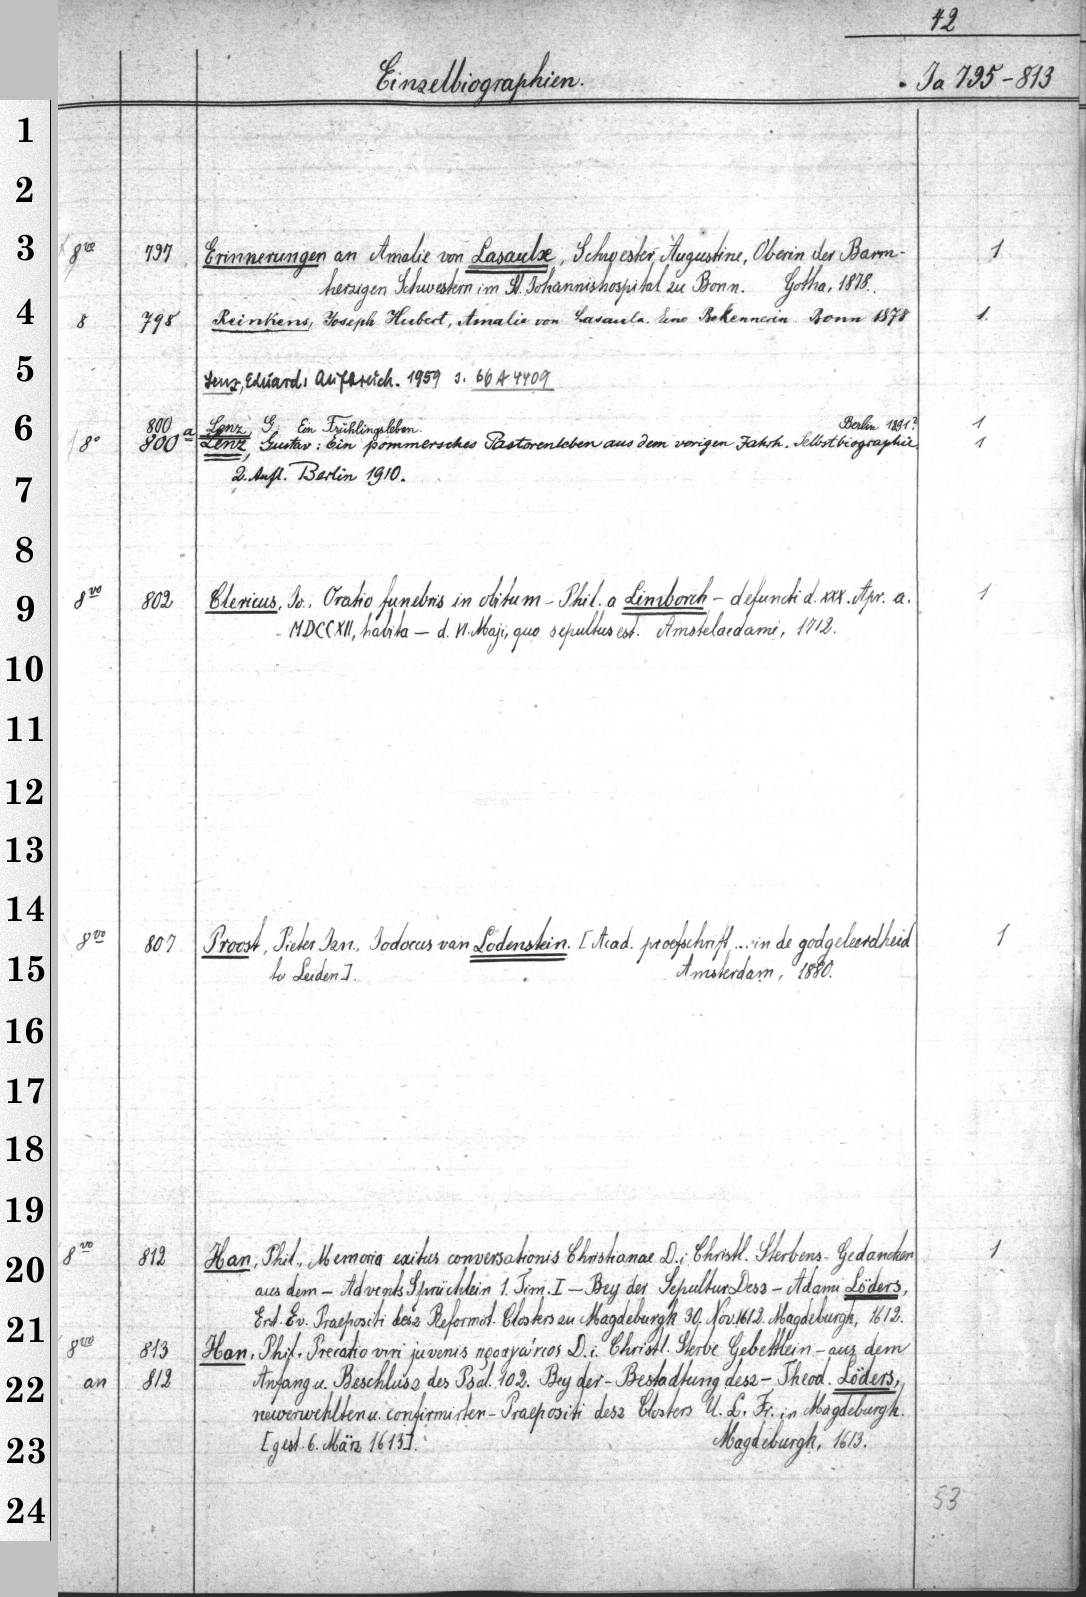 42
Einzelbiographien. Ja 795-813
1
2
3
8vo 797 Erinnerungen an Amalie von Lasaulx, Schwester Augustine, Oberin der Barm- 1
herzigen Schwestern im St. Johannishospital zu Bonn. Gotha, 1878.
4
8 798 Reinkens, Joseph Hubert, Amalie von Lasaulx. Eine Bekennerin. Bonn 1878 1.
5
Lenz, Eduard: 1959 s. 66 A 4409
6
800 Lenz, G: Ein Frühlingsleben. Berlin 1891? 1
8° 800a Lenz, Gustav: Ein pommersches Pastorenleben aus dem vorigen Jahrh. Selbstbiographie. 1
7
2. Aufl. Berlin 1910.
8
9
8vo 802 Clericus, Jo., Oratio funebris in obitum - Phil. a Limborch - defuncti d. XXX. Apr. a. 1
MDCCXII, habita - d. VI. Maji, quo sepultus est. Amstelaedami, 1712.
10
11
12
13
14
8vo 807 Proost, Pieter Jan., Jodocus van Lodenstein. [Acad. proefschrift ... in de godgeleerdheid 1
15
te Leiden]. Amsterdam, 1880.
16
17
18
19
8vo 812 Han, Phil., Memoria exitus conversationis Christianae D. i. Christl. Sterbens-Gedancken 1
20
aus dem - Advents Sprüchlein 1. Tim. I - Bey der Sepultur Dess - Adami Löders,
21
Erst. Ev. Praepositi desz Reformirt. Closters zu Magdeburgk 30. Nov. 1612. Magdeburgh, 1612.
8vo 813 Han, Phil., Precatio viri juvenis D. i. Christl. Sterbe Gebettlein - aus dem
22
an 812 Anfang u. Beschlusz des Psal. 102. Bey der - Bestadtung desz - Theod. Löders,
neuerwehlten u. confirmirten - Praepositi desz Closters U. L. Fr. in Magdeburgk.
23
[gest. 6. März 1613]. Magdeburgh, 1613.
24
53